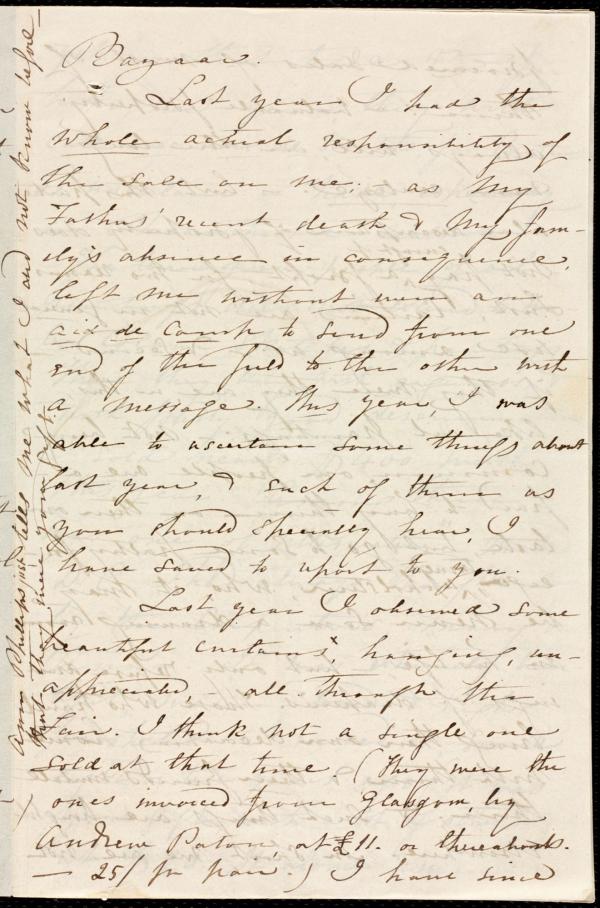 Bazaar.
Last year I had the
whole actual responsibility of
the sale on me: as my
Father's recent death & my fam-
ily's absence in consequence,
left me without even an
aid de camp to send from one
end of the field to the other with
a message. This year, I was
able to ascertain some things about
last year, & such of them as
you should specially hear, I
have saved to report to you.
Last year I observed some
beautiful curtains, x hanging, un-
appreciated, - all through the
Fair. I think not a single one
sold at that time. (They were the
ones invoiced from Glasgow, by
Andrew Paton, at £11. or thereabouts.
— 25/ pr pair.) I have since
Ann Phillips just tells me what I did not know before —
that these were your gift.